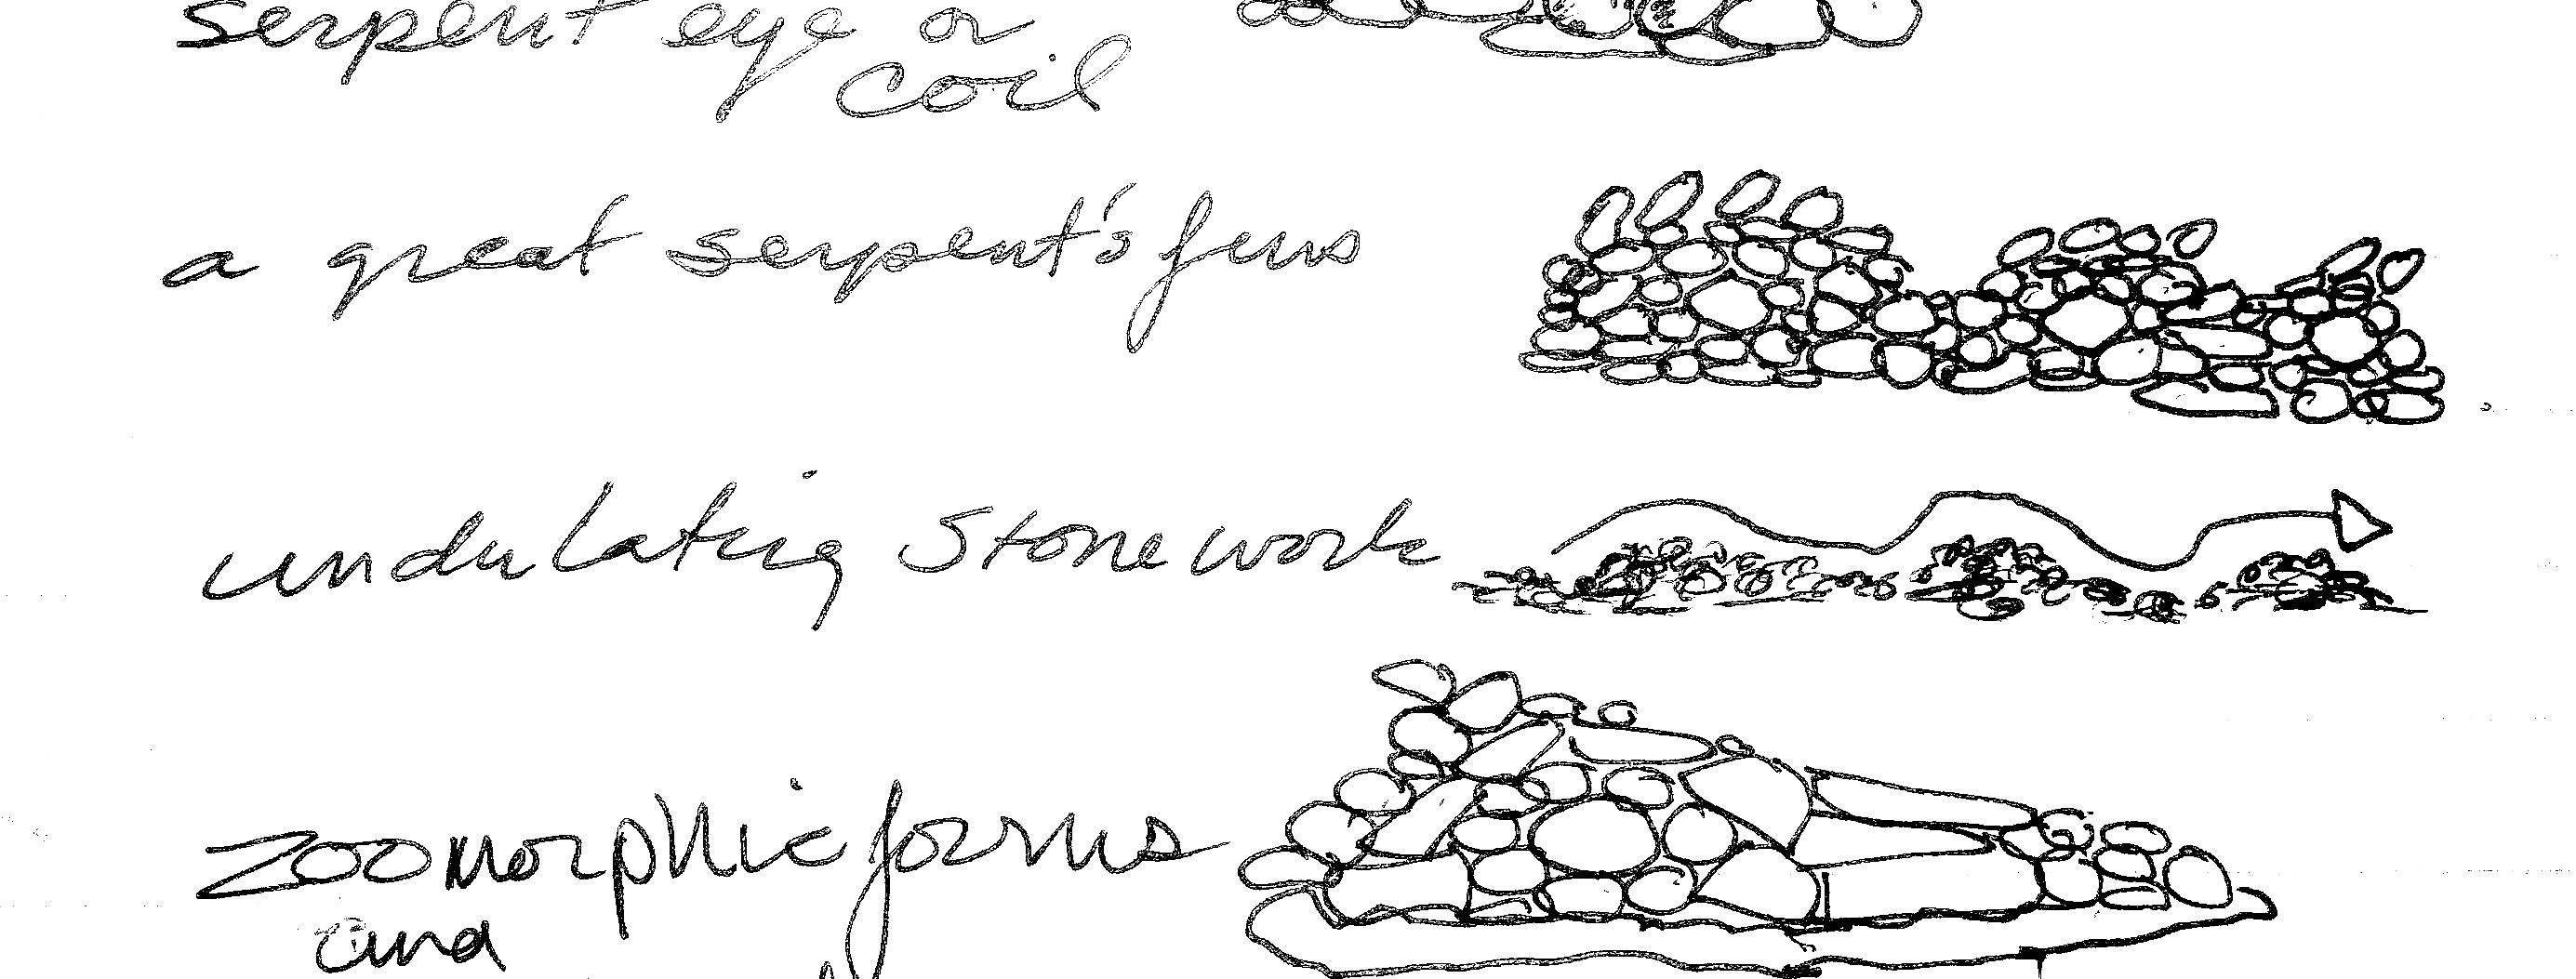 serpent eye or
coil
a great serpent's fins
undulating Stonework
zoomorphic forms
and